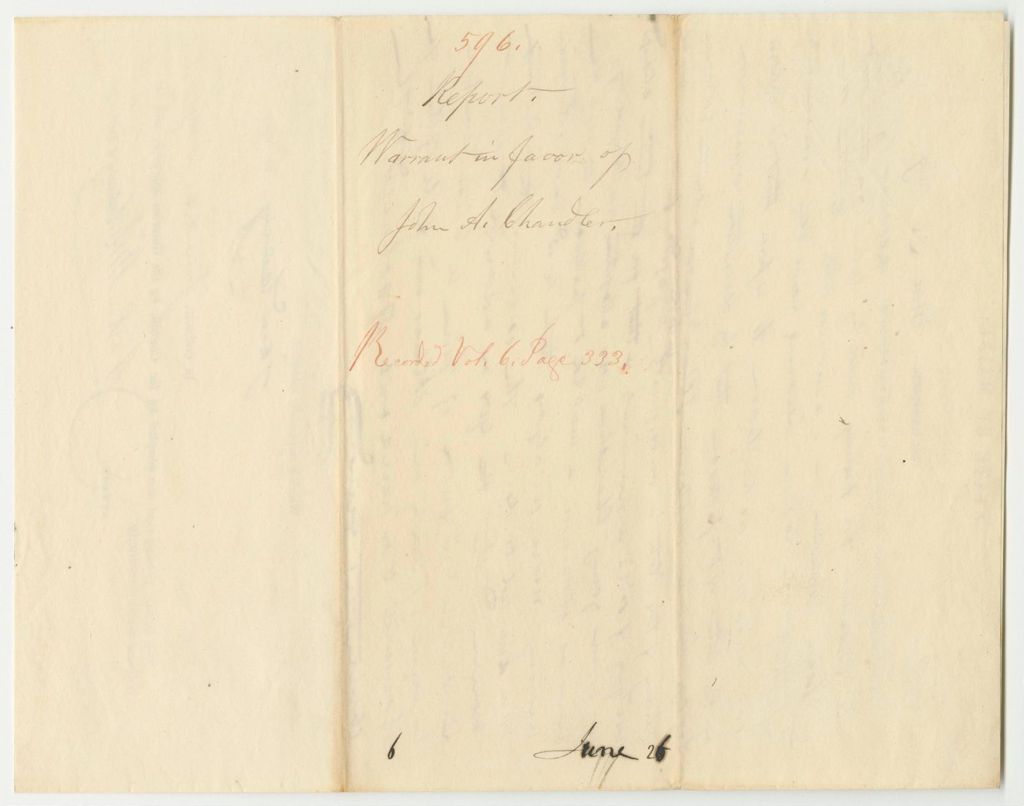 596.
Report.
Warrant in favor of
John A. Chandler.
Recorded Vol. 6. Page 333.
6 June 26